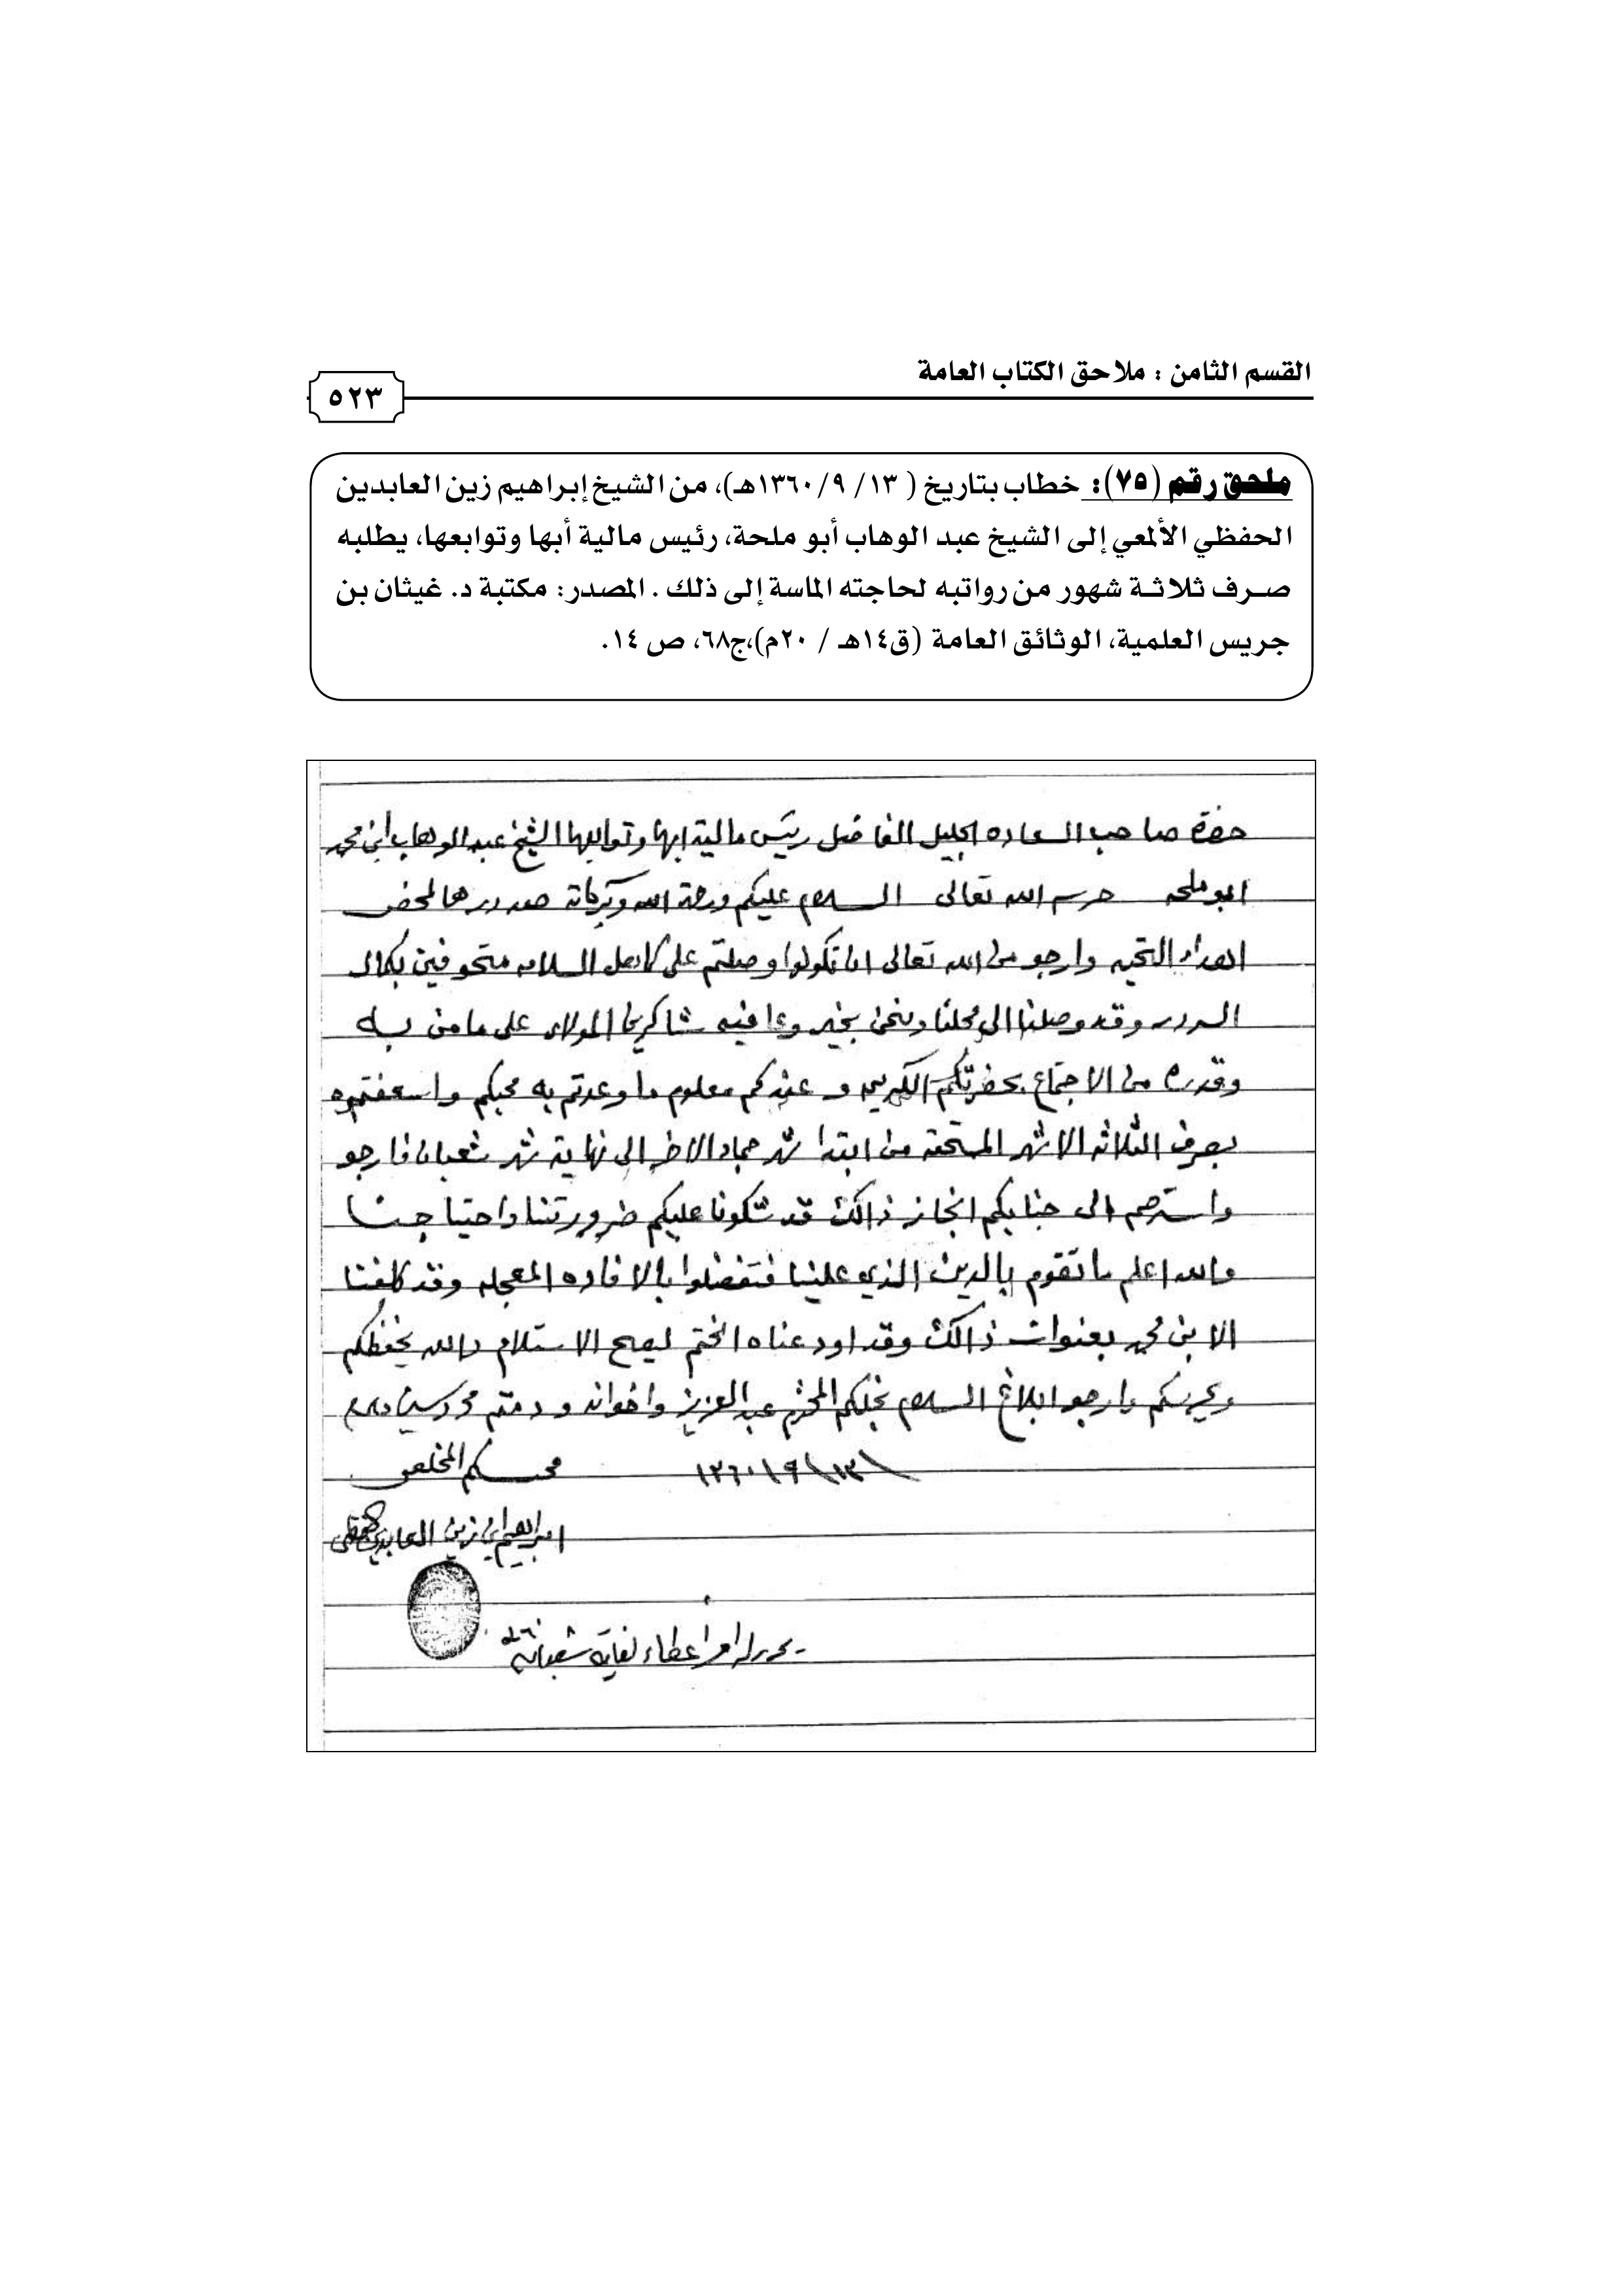 القسم الثامن : ملاحق الكتاب العامة
٥٢٣
ملحق رقم (٧٥): خطاب بتاريخ ( ١٣/ ٩ /١٣٦٠هـ)، من الشيخ إبراهيم زين العابدين
الحفظي الألمعي إلى الشيخ عبد الوهاب أبو ملحة، رئيس مالية أبها وتوابعها، يطلبه
صرف ثلاثة شهور من رواتبه لحاجته الماسة إلى ذلك . المصدر: مكتبة د. غيثان بن
جريس العلمية، الوثائق العامة (ق١٤هـ / ٢٠م)،ج٦٨، ص ١٤.
حضرة صاحب السعاده الجليل الفاضل رئيس مالية ابها وتوابعها الشيخ عبد الوهاب ابن محمد
ابو ملحه حرسه الله تعالى السلام عليكم ورحمة الله وبركاته صدورها لمحض
اهداء التحيه وارجو من الله تعالى ان تكونوا وصلتم على كاهل السلامه متحوفين بكمال
السرور وقد وصلنا الى محلنا ونحن بخير وعافيه شاكرين المولاى على ما من به
وقدره من الاجتماع بحضرتكم الكريمه و عندكم معلوم ما وعدتم به محبكم واسعفتموه
بصرف الثلاثه الاشهر المستحقه من ابتدا شهر جماد الاخر الى نهاية شهر شعبان فارجو
واسترحم الى جنابكم انجاز ذالك قد شكونا عليكم ضرورتنا واحتياجنا
والله اعلم ما تقوم بالدين الذي علينا فتفضلوا بالافاده المعجله وقد كلفنا
الابن محمد بعنوان ذالك وقد اودعناه الختم ليصح الاستلام والله يحفظكم
ويحرسكم وارجو ابلاغ السلام نجلكم المحترم عبد العزيز واخوانه ودمتم محروسين
١٣\٩\١٣٦٠ محبكم المخلص
ابراهيم ابن زين العابدين الحفظي
يحرر له امر اعطاء لغاية شعبان